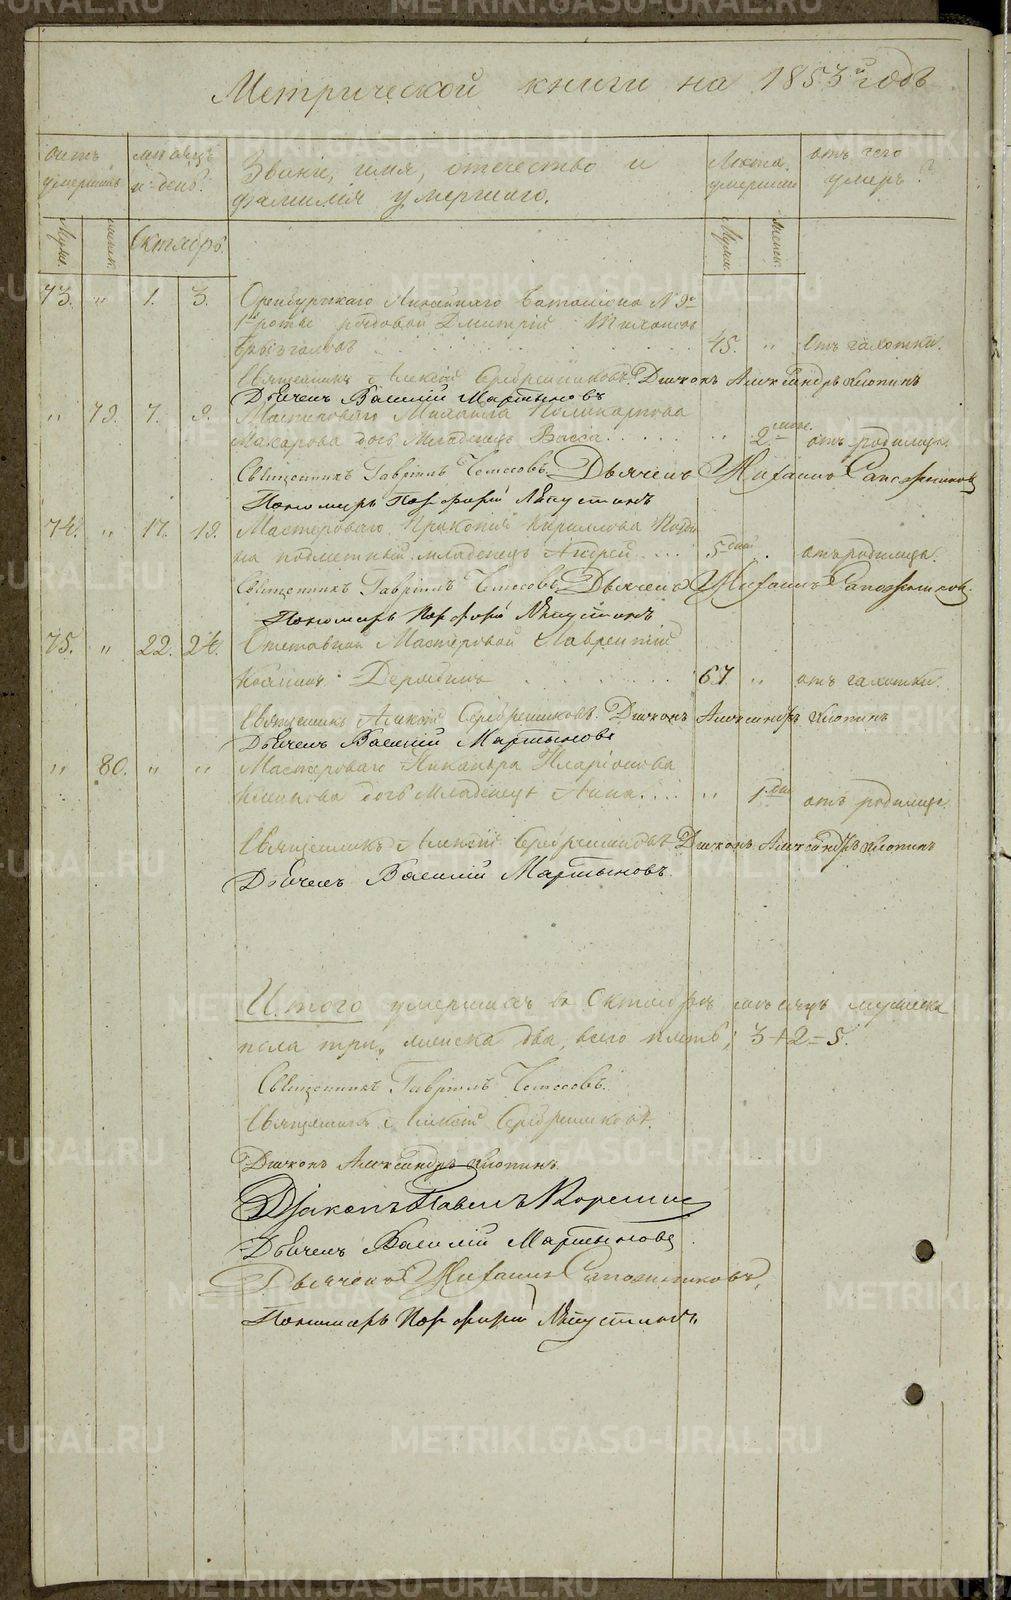 Метрической книги на 1853й годъ
счетъ умершихъ
мѣсяцъ и день.
Званіе, имя, отечество и фамилія умершаго.
Лѣта умершихъ
отъ чего умеръ?
Муж. женск. Октябрь. Муж. женск.
73. " 1. 3. Оренбургскаго Линейнаго баталіона №
1й роты рядовой Дмитрій
45. " отъ чахотки.
Священникъ Алексій Серебренниковъ. Діаконъ Александръ Хлопинъ
Дьячекъ Василій Мартыновъ
" 79. 7. 9. Мастероваго Михаила Поликарпова
Макарова дочь Младенецъ Васса..... " 2 отъ родимца.
Священникъ Гавріилъ Дьячекъ Михаилъ Сапожниковъ
Пономарь Порфирій
74. " 17. 19. Мастероваго Прокопія Кириллова
подметный младенецъ Андрей.... 5 дней . отъ родимца.
Священникъ Гавріилъ Дьячекъ Михаилъ Сапожниковъ.
Пономарь Порфирій
75. " 22. 24. Отставной Мастеровой Лаврентій
Дерябинъ 67 " отъ чахотки.
Священникъ Алексій Серебренниковъ. Діаконъ Александръ Хлопинъ
Дьячекъ Василій Мартыновъ
" 80. " " Мастероваго Никандра Иларіонова
дочь Младенецъ Анна.... " 1 отъ родимца.
Священникъ Алексій Серебренниковъ Діаконъ Александръ Хлопинъ
Дьячекъ Василій Мартыновъ.
Итого умершихъ въ Октябрѣ мѣсяцѣ мужеска
пола три, женска два, всего пять; 3+2=5.
Священникъ Гавріилъ
Священникъ Алексій Серебренниковъ.
Діаконъ Александръ Хлопинъ.
Діаконъ Павелъ
Дьячекъ Василій Мартыновъ
Дьячекъ Михаилъ Сапожниковъ.
Пономарь Порфирій
METRIKI.GASO-URAL.RU